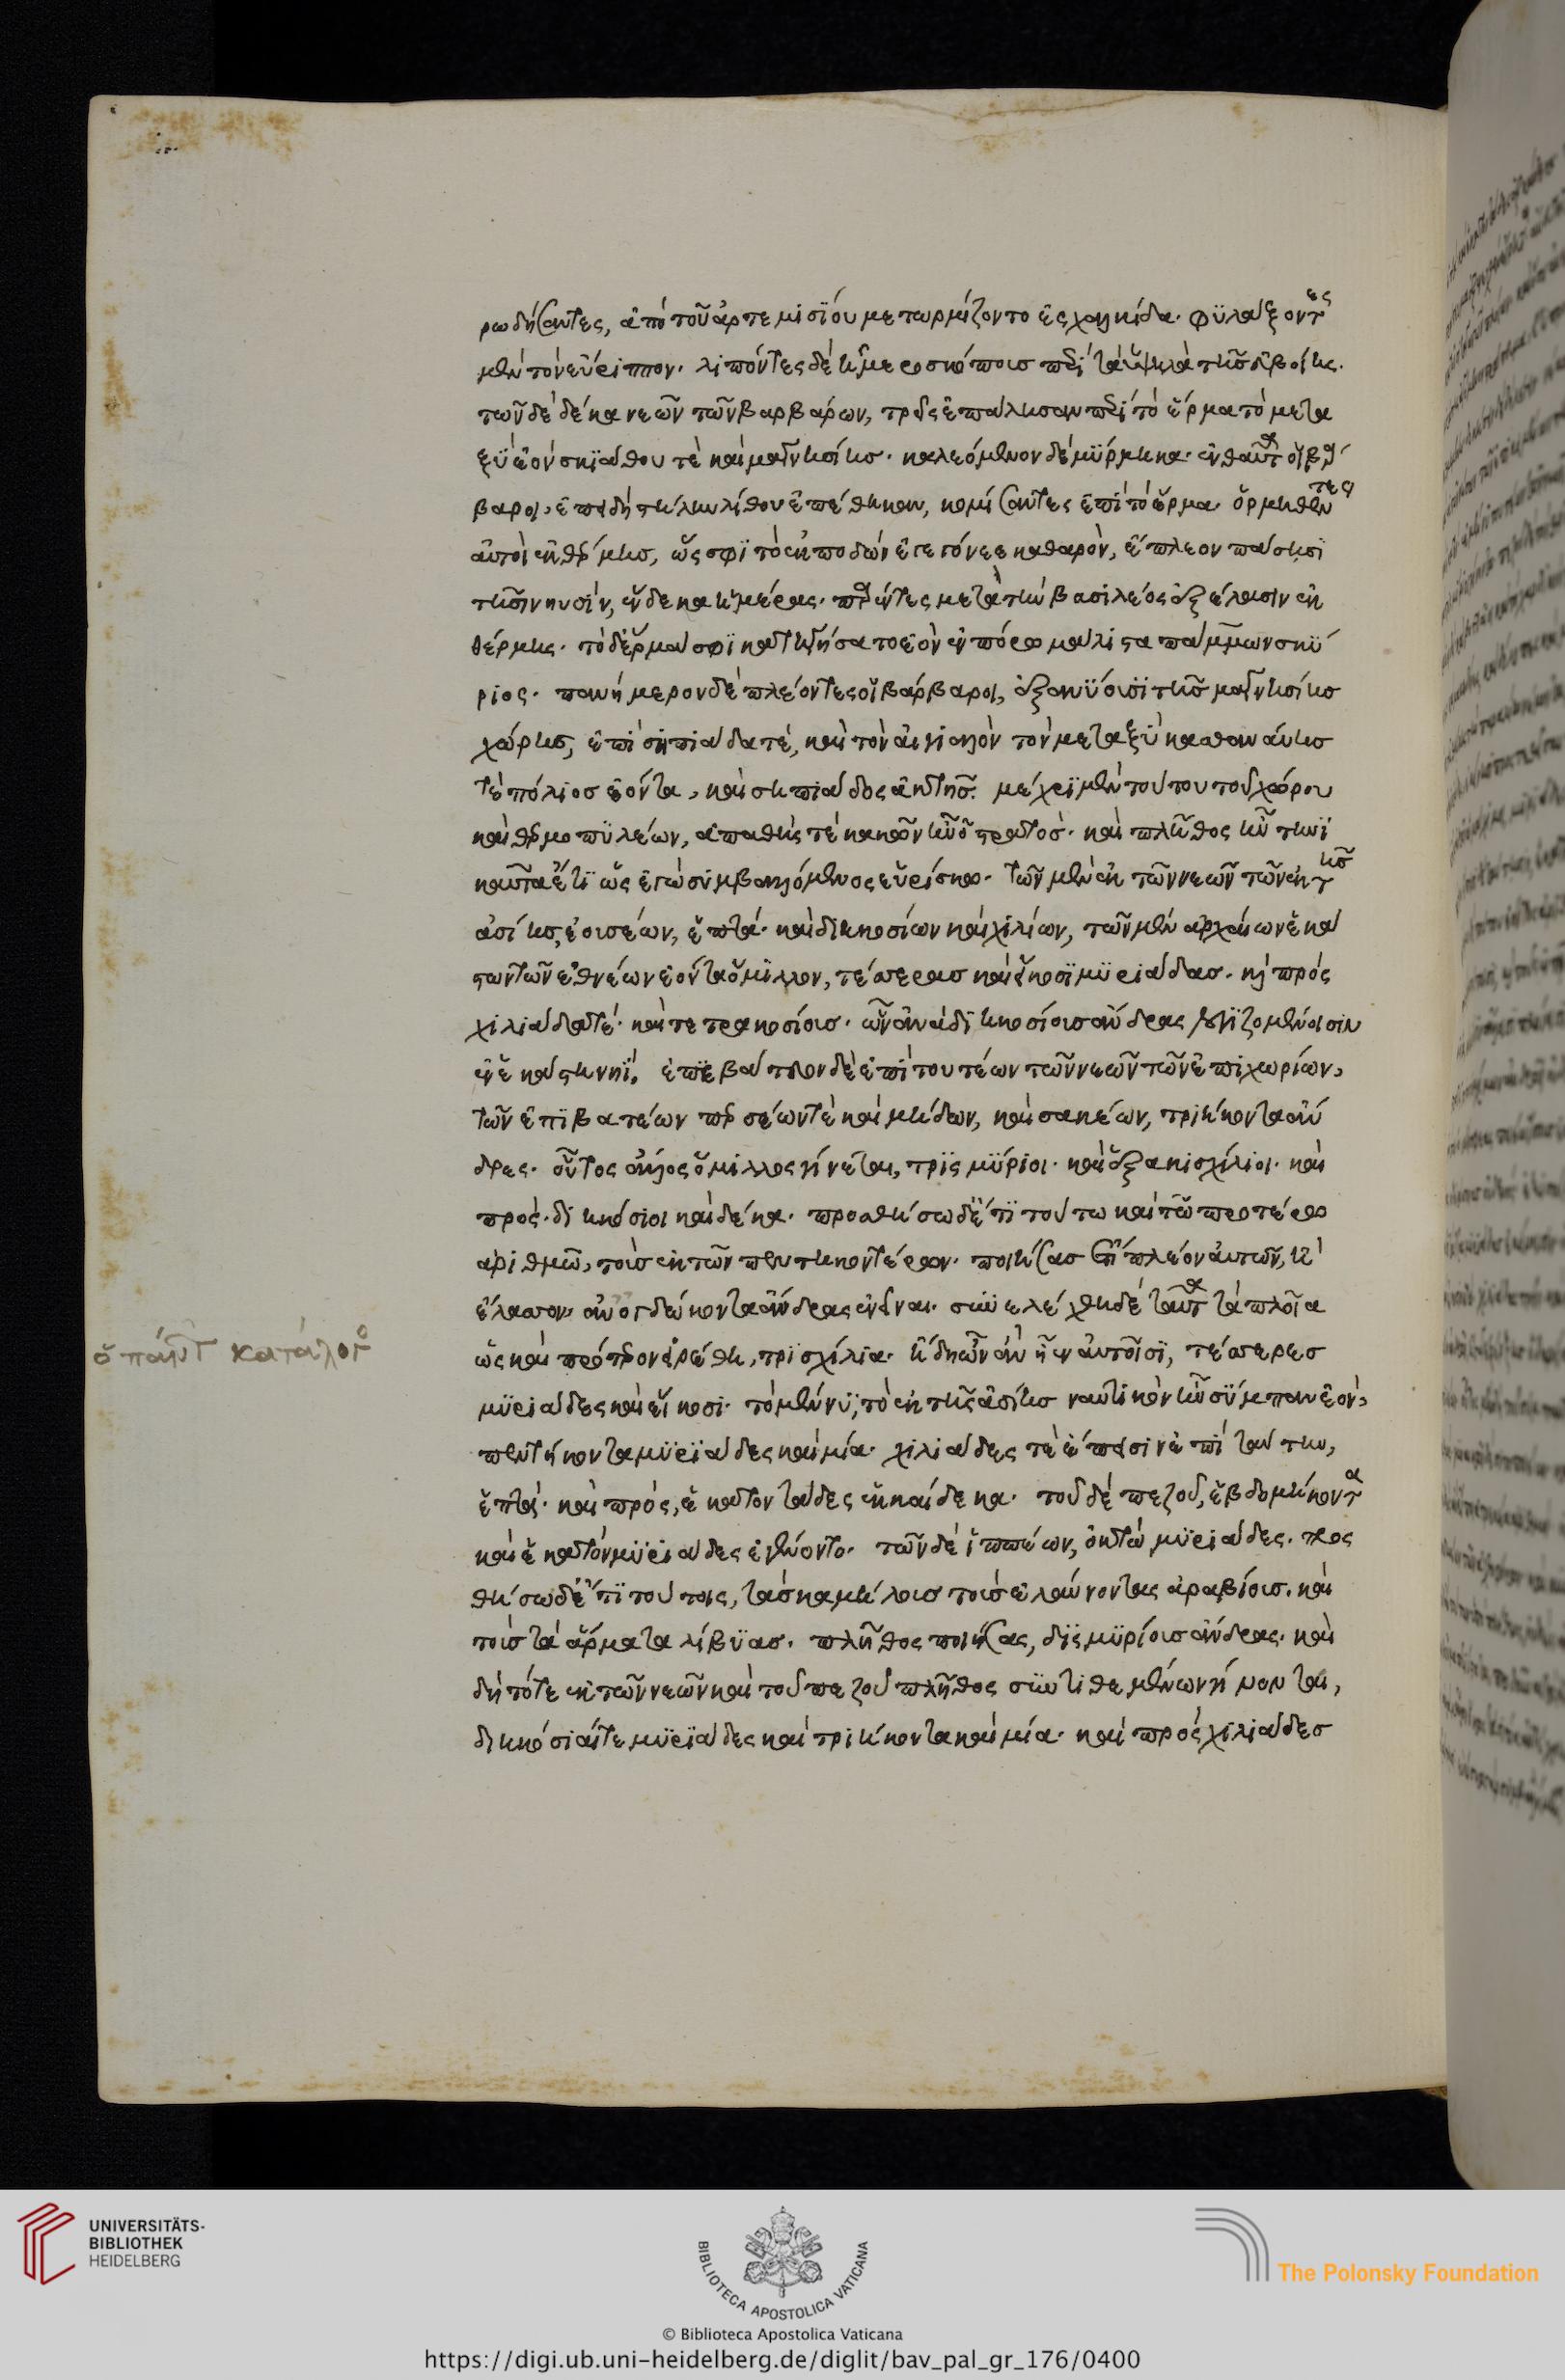 ρωδήσαντες, ἀπὸ τοῦ ἀρτεμισίου μετωρμίζοντο ἐς χαλκίδα· φυλάξοντες
μὲν τὸν εὔριππον· λιπόντες δὲ ἡμεροσκόπους περὶ τὰ ὑψηλὰ τῆς εὐβοίης.
τῶν δὲ δέκα νεῶν τῶν βαρβάρων, τρεῖς ἐπάλησαν περὶ τὸ ἕρμα τὸ μετα
ξὺ ἐὸν σκιάθου τὲ καὶ μαγνησίης· καλεόμενον δὲ μύρμηκα· ἐνθαῦτα οἱ βάρ
βαροι, ἐπειδὴ στήλην λίθου ἐπέθηκαν, κομίσαντες ἐπὶ τὸ ἕρμα· ὁρμηθέντες
αὐτοὶ ἐκ θέρμης, ὥς σφι τὸ ἐκποδὼν ἐγεγόνεε καθαρὸν, ἔπλεον πάσηισι
τῆισι νηυσὶν, ἕνδεκα ἡμέρας· παρέντες μετὰ τὴν βασιλέος ἐξέλασιν ἐκ
θέρμης· τὸ δὲ ἕρμα σφι κατηγήσατο ἐὸν ἐν πόρω μάλιστα πάμμων σκύ
ριος· πανήμερον δὲ πλέοντες οἱ βάρβαροι, ἐξανύουσι τῆς μαγνησίης
χώρης, ἐπὶ σηπιάδα τὲ, καὶ τὸν αἰγιαλὸν τὸν μεταξὺ κασθαναίης
τὲ πόλιος ἐόντα, καὶ σηπιάδος ἀκτῆς. μέχρι μὲν τούτου τοῦ χώρου
καὶ θερμοπυλέων, ἀπαθής τὲ κακῶν ἦν ὁ στρατός· καὶ πλῆθος ἦν τηνι
καῦτα ἔτι ὡς ἐγὼ συμβαλλόμενος εὑρίσκω· τῶν μὲν ἐκ τῶν νεῶν τῶν ἐκ τῆς
ἀσίης, ἐουσέων, ἑπτὰ· καὶ διηκοσίων καὶ χιλίων, τῶν μὲν ἀρχαίων ἑκά
στων τῶν ἐθνέων ἐόντα ὅμιλλον, τέσσερας καὶ εἴκοσι μυριάδας· καὶ πρὸς
χιλιάδα τέ· καὶ τετρακοσίους· ὡς ἀνὰ διηκοσίους ἄνδρας λογιζομένοισιν
ἐν ἑκάστη νηΐ. ἐπεβάτευον δὲ ἐπὶ τουτέων τῶν νεῶν τῶν ἐπιχωρίων,
τῶν ἐπιβατέων περσέων τὲ καὶ μήδων, καὶ σακέων, τριήκοντα ἄν
δρες· οὗτος ἄλλος ὅμιλλος γίνεται, τρὶς μύριοι· καὶ ἑξακισχίλιοι· καὶ
πρός· διηκόσιοι καὶ δέκα· προσθήσω δ᾽ ἔτι τούτω καὶ τῶ προτέρω
ἀριθμῶ, τοὺς ἐκ τῶν πεντηκοντέρων· ποιήσας ὅτι πλέον αὐτῶν, ἢ
ἔλασσον· ἀν᾽ ὀγδώκοντα ἄνδρας ἐνεῖναι· συνελέχθη δὲ ταῦτα τὰ πλοῖα
ὁ πάντων κατάλογος
ὡς καὶ πρότερον εἰρέθη, τρισχίλια· ἤδη ὦν ἂν ἦεν αὐτοῖσι, τέσσερες
μυριάδες καὶ εἴκοσι· τὸ μὲν νυ, τὸ ἐκ τῆς ἀσίης ναυτικὸν ἦν σύμπαν ἐὸν,
πεντήκοντα μυριάδες καὶ μία· χιλιάδες τὲ ἔπεισιν ἐπὶ ταύτη,
ἑπτὰ· καὶ πρὸς, ἑκατοντάδες ἑκκαίδεκα· τοῦ δὲ πεζοῦ, ἑβδομήκοντα
καὶ ἑκατὸν μυριάδες ἐγένοντο· τῶν δὲ ἱππέων, ὀκτὼ μυριάδες. προσ
θήσω δ᾽ ἔτι τούτοις, τὰς καμήλους τοὺς ἐλαύνοντας ἀραβίους. καὶ
τοὺς τὰ ἅρματα λίβυας· πλῆθος ποιήσας, δὶς μυρίους ἄνδρας· καὶ
δὴ τότε ἐκ τῶν νεῶν καὶ τοῦ πεζοῦ πλῆθος συντιθεμένων γίνονται,
διηκόσιαί τε μυριάδες καὶ τριήκοντα καὶ μία· καὶ πρὸς χιλιάδες
UNIVERSITÄTS-
BIBLIOTHEK
HEIDELBERG
BIBLIOTECA APOSTOLICA VATICANA
The Polonsky Foundation
© Biblioteca Apostolica Vaticana
https://digi.ub.uni-heidelberg.de/diglit/bav_pal_gr_176/0400